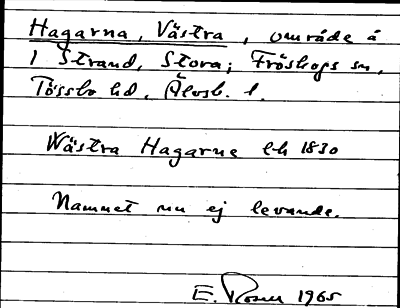 Hagarna, Västra, område å
1 Strand, Stora; Fröskogs sn,
Tössbo hd. Älvsb. l.
Wästra Hagarne lh 1830
Namnet nu ej levande.
E. Rosén 1965